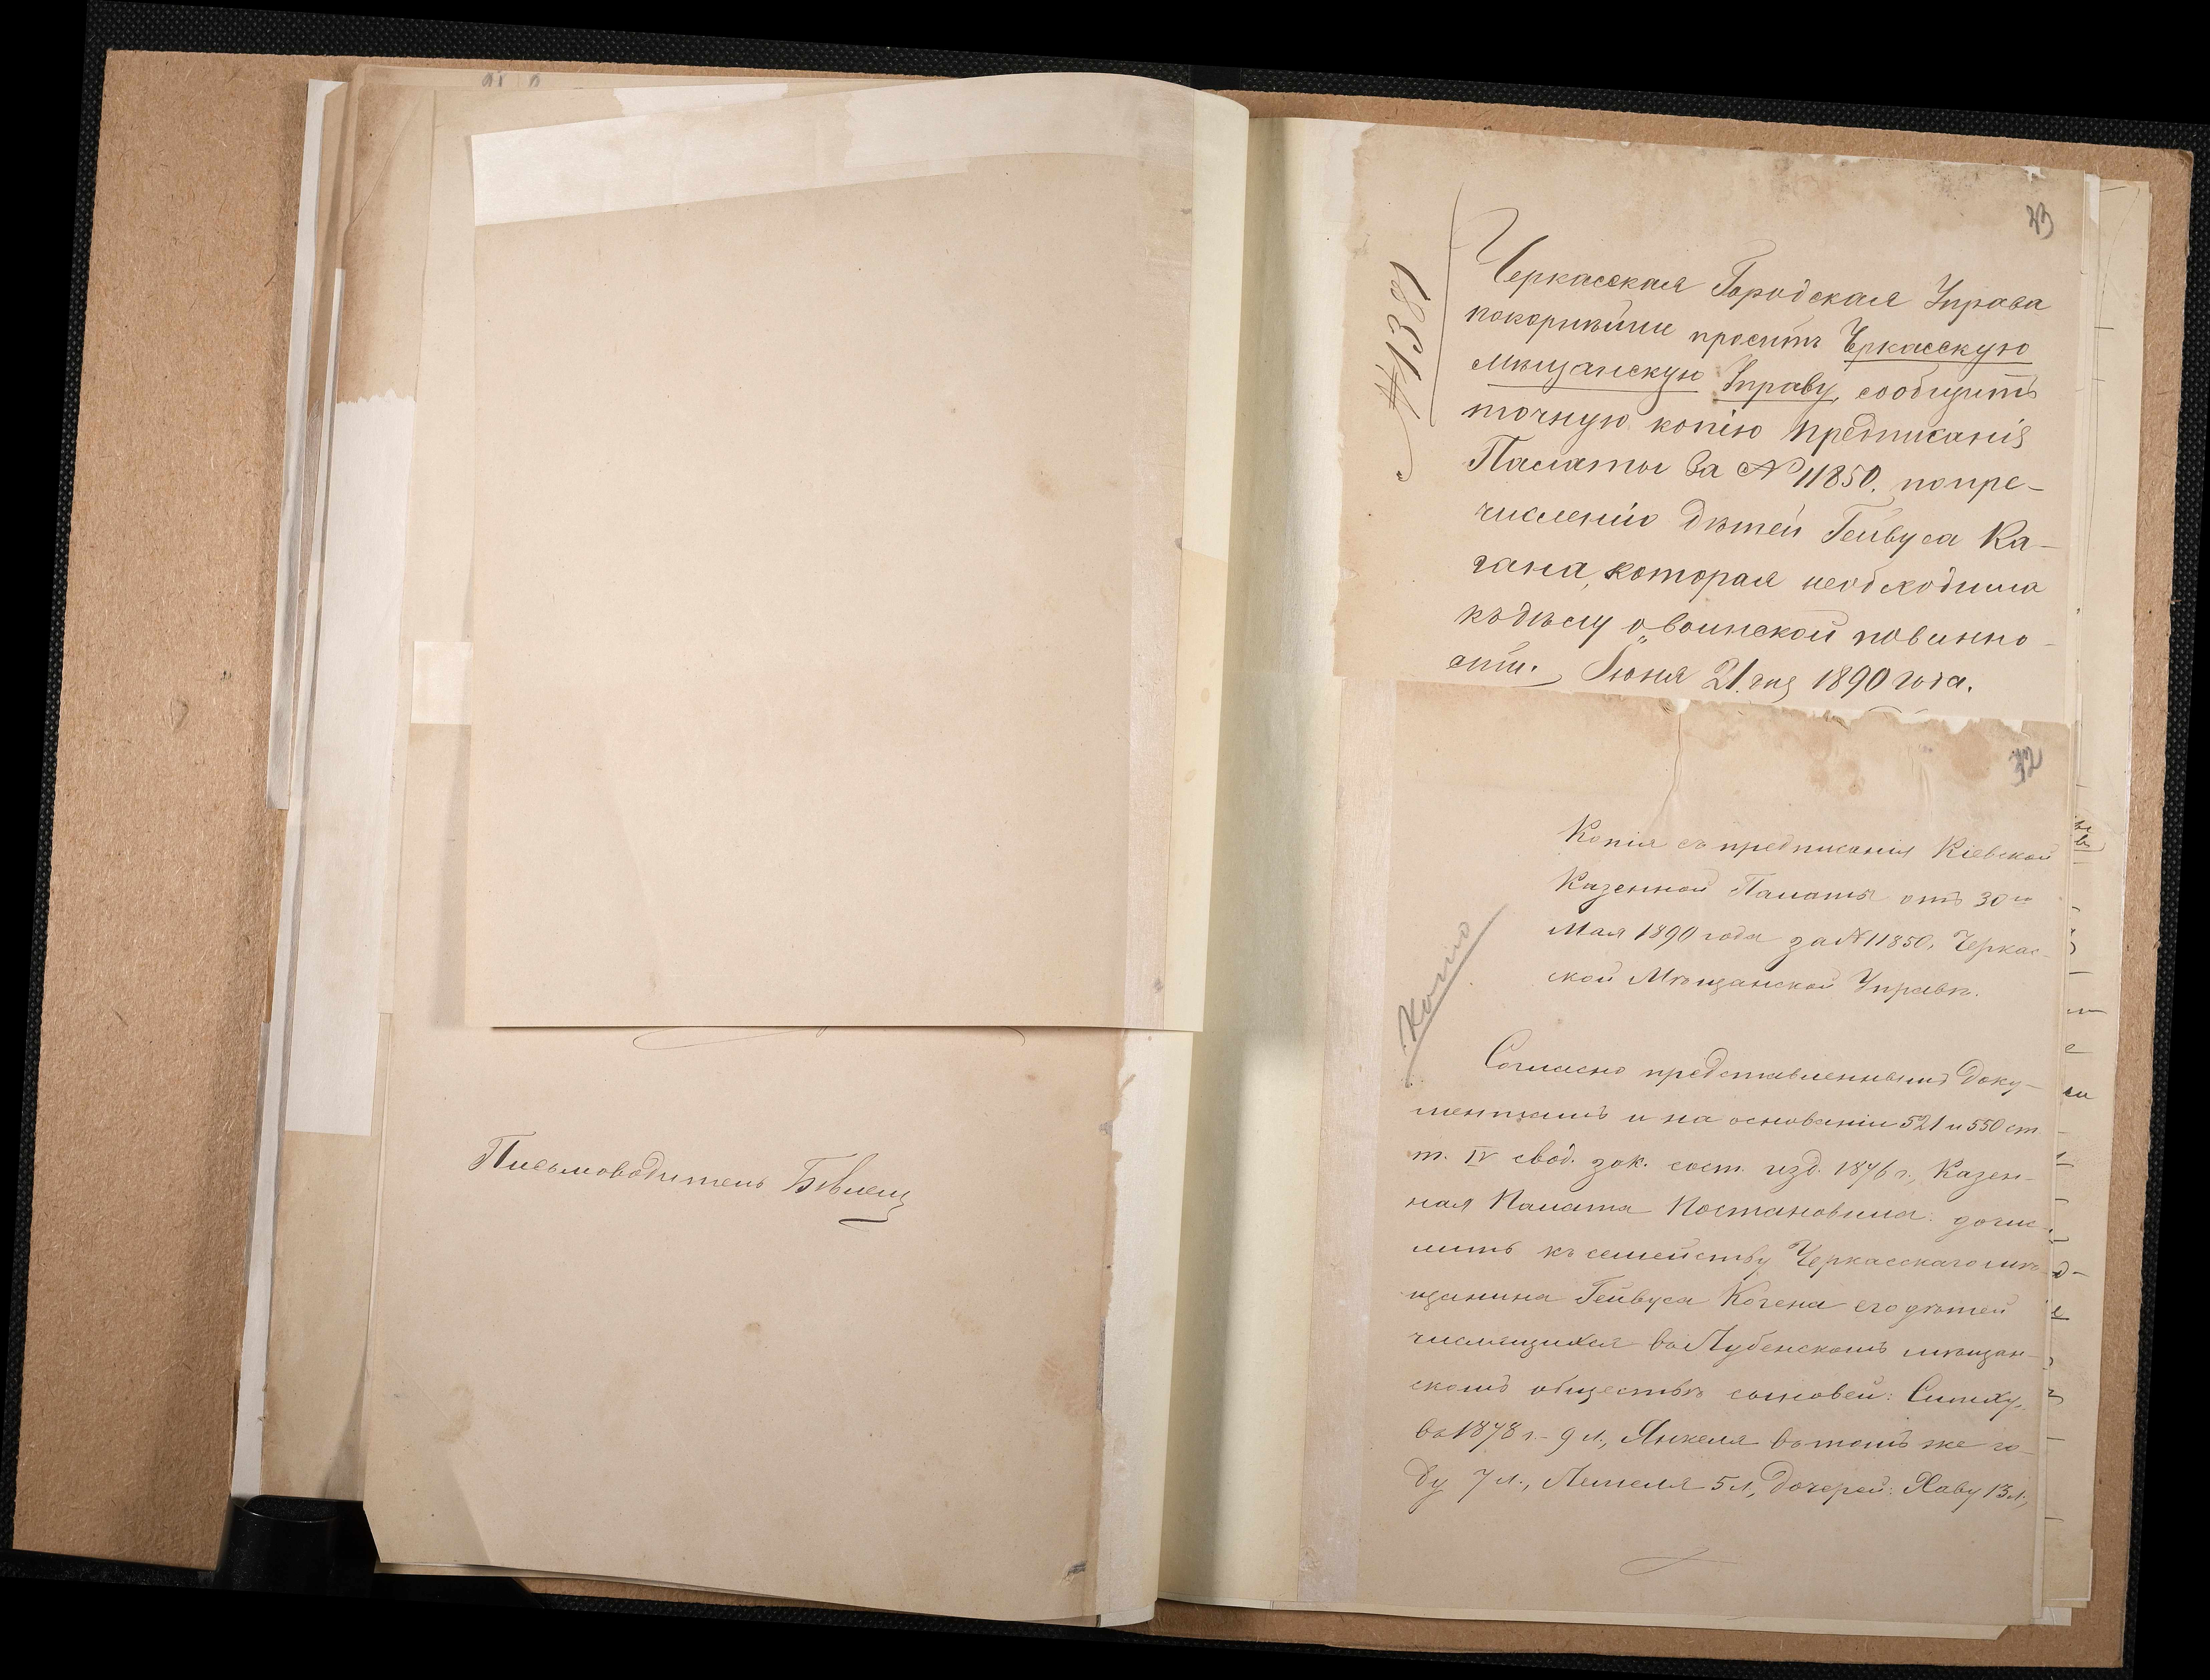 Письмоводитель
33
№1381
Черкасская Городская Управа
покорнѣйше проситъ Черкасскую
мѣщанскую Управу, сообщить
точную копію предписанія
Палаты за № 11850. попре-
численію дѣтей Гейвуса Ка-
гана, которая необходима
къ дѣлу о воинской повинно-
сти. Іюня 21 дня 1890 года.
32
Копія съ предписанія Кіевской
Казенной Палаты отъ 30го
Мая 1890 года за №11850, Черкас-
ской Мѣщанской Управѣ.
Копію
Согласно представленнымъ доку-
ментамъ и на основаніи 521 и 550 ст.
т. IV свод. зак. сост. изд. 1876 г., Казен-
ная Палата Постановила: дочис-
лить къ семейству Черкасскаго мѣ-
щанина Гейвуса Когена его дѣтей
числящихся въ Лубенскомъ мѣщан-
скомъ обществѣ сыновей: Симху,
въ 1878 г. - 9 л., Янкеля въ томъ же го-
ду 7 л., 5 л., дочерей: Хаву 13 л.,